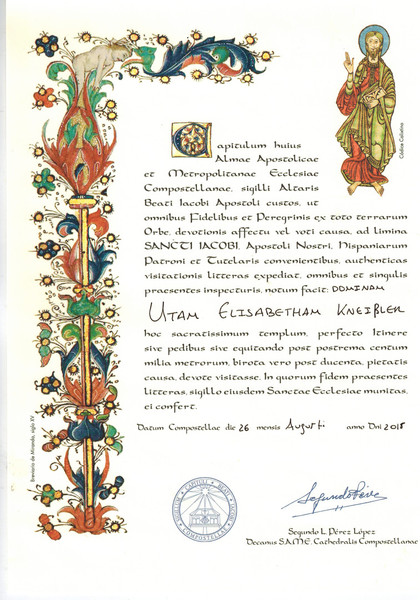 Capitulum huius
Almae Apostolicae
et Metropolitanae Ecclesiae
Compostellanae, sigilli Altaris
Beati Iacobi Apostoli custos, ut
omnibus Fidelibus et Peregrinis ex toto terrarum
Orbe, devotionis affectu vel voti causa, ad limina
SANCTI IACOBI, Apostoli Nostri, Hispaniarum
Patroni et Tutelaris convenientibus, authenticas
visitationis litteras expediat, omnibus et singulis
praesentes inspecturis, notum facit: DOMINAM
UTAM ELISABETHAM KNEIßLER
hoc sacratissimum templum, perfecto Itinere
sive pedibus sive equitando post postrema centum
milia metrorum, birota vero post ducenta, pietatis
causa, devote visitasse. In quorum fidem praesentes
litteras, sigillo eiusdem Sanctae Ecclesiae munitas,
ei confert.
Datum Compostellae die 26 mensis Augusti anno Dni 2018
Segundo L. Pérez López
Decanus S.A.M.E. Cathedralis Compostellanae
Códice Calixtino
Breviario de Miranda, siglo XV